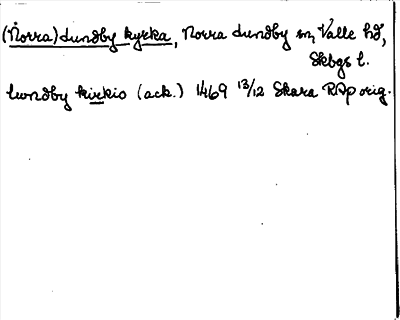 (Norra) Lundby kyrka, Norra Lundby sn, Valle hd,
Skbgs l.
lundby kirkio (ack.) 1469 13/12 Skara RAp orig.